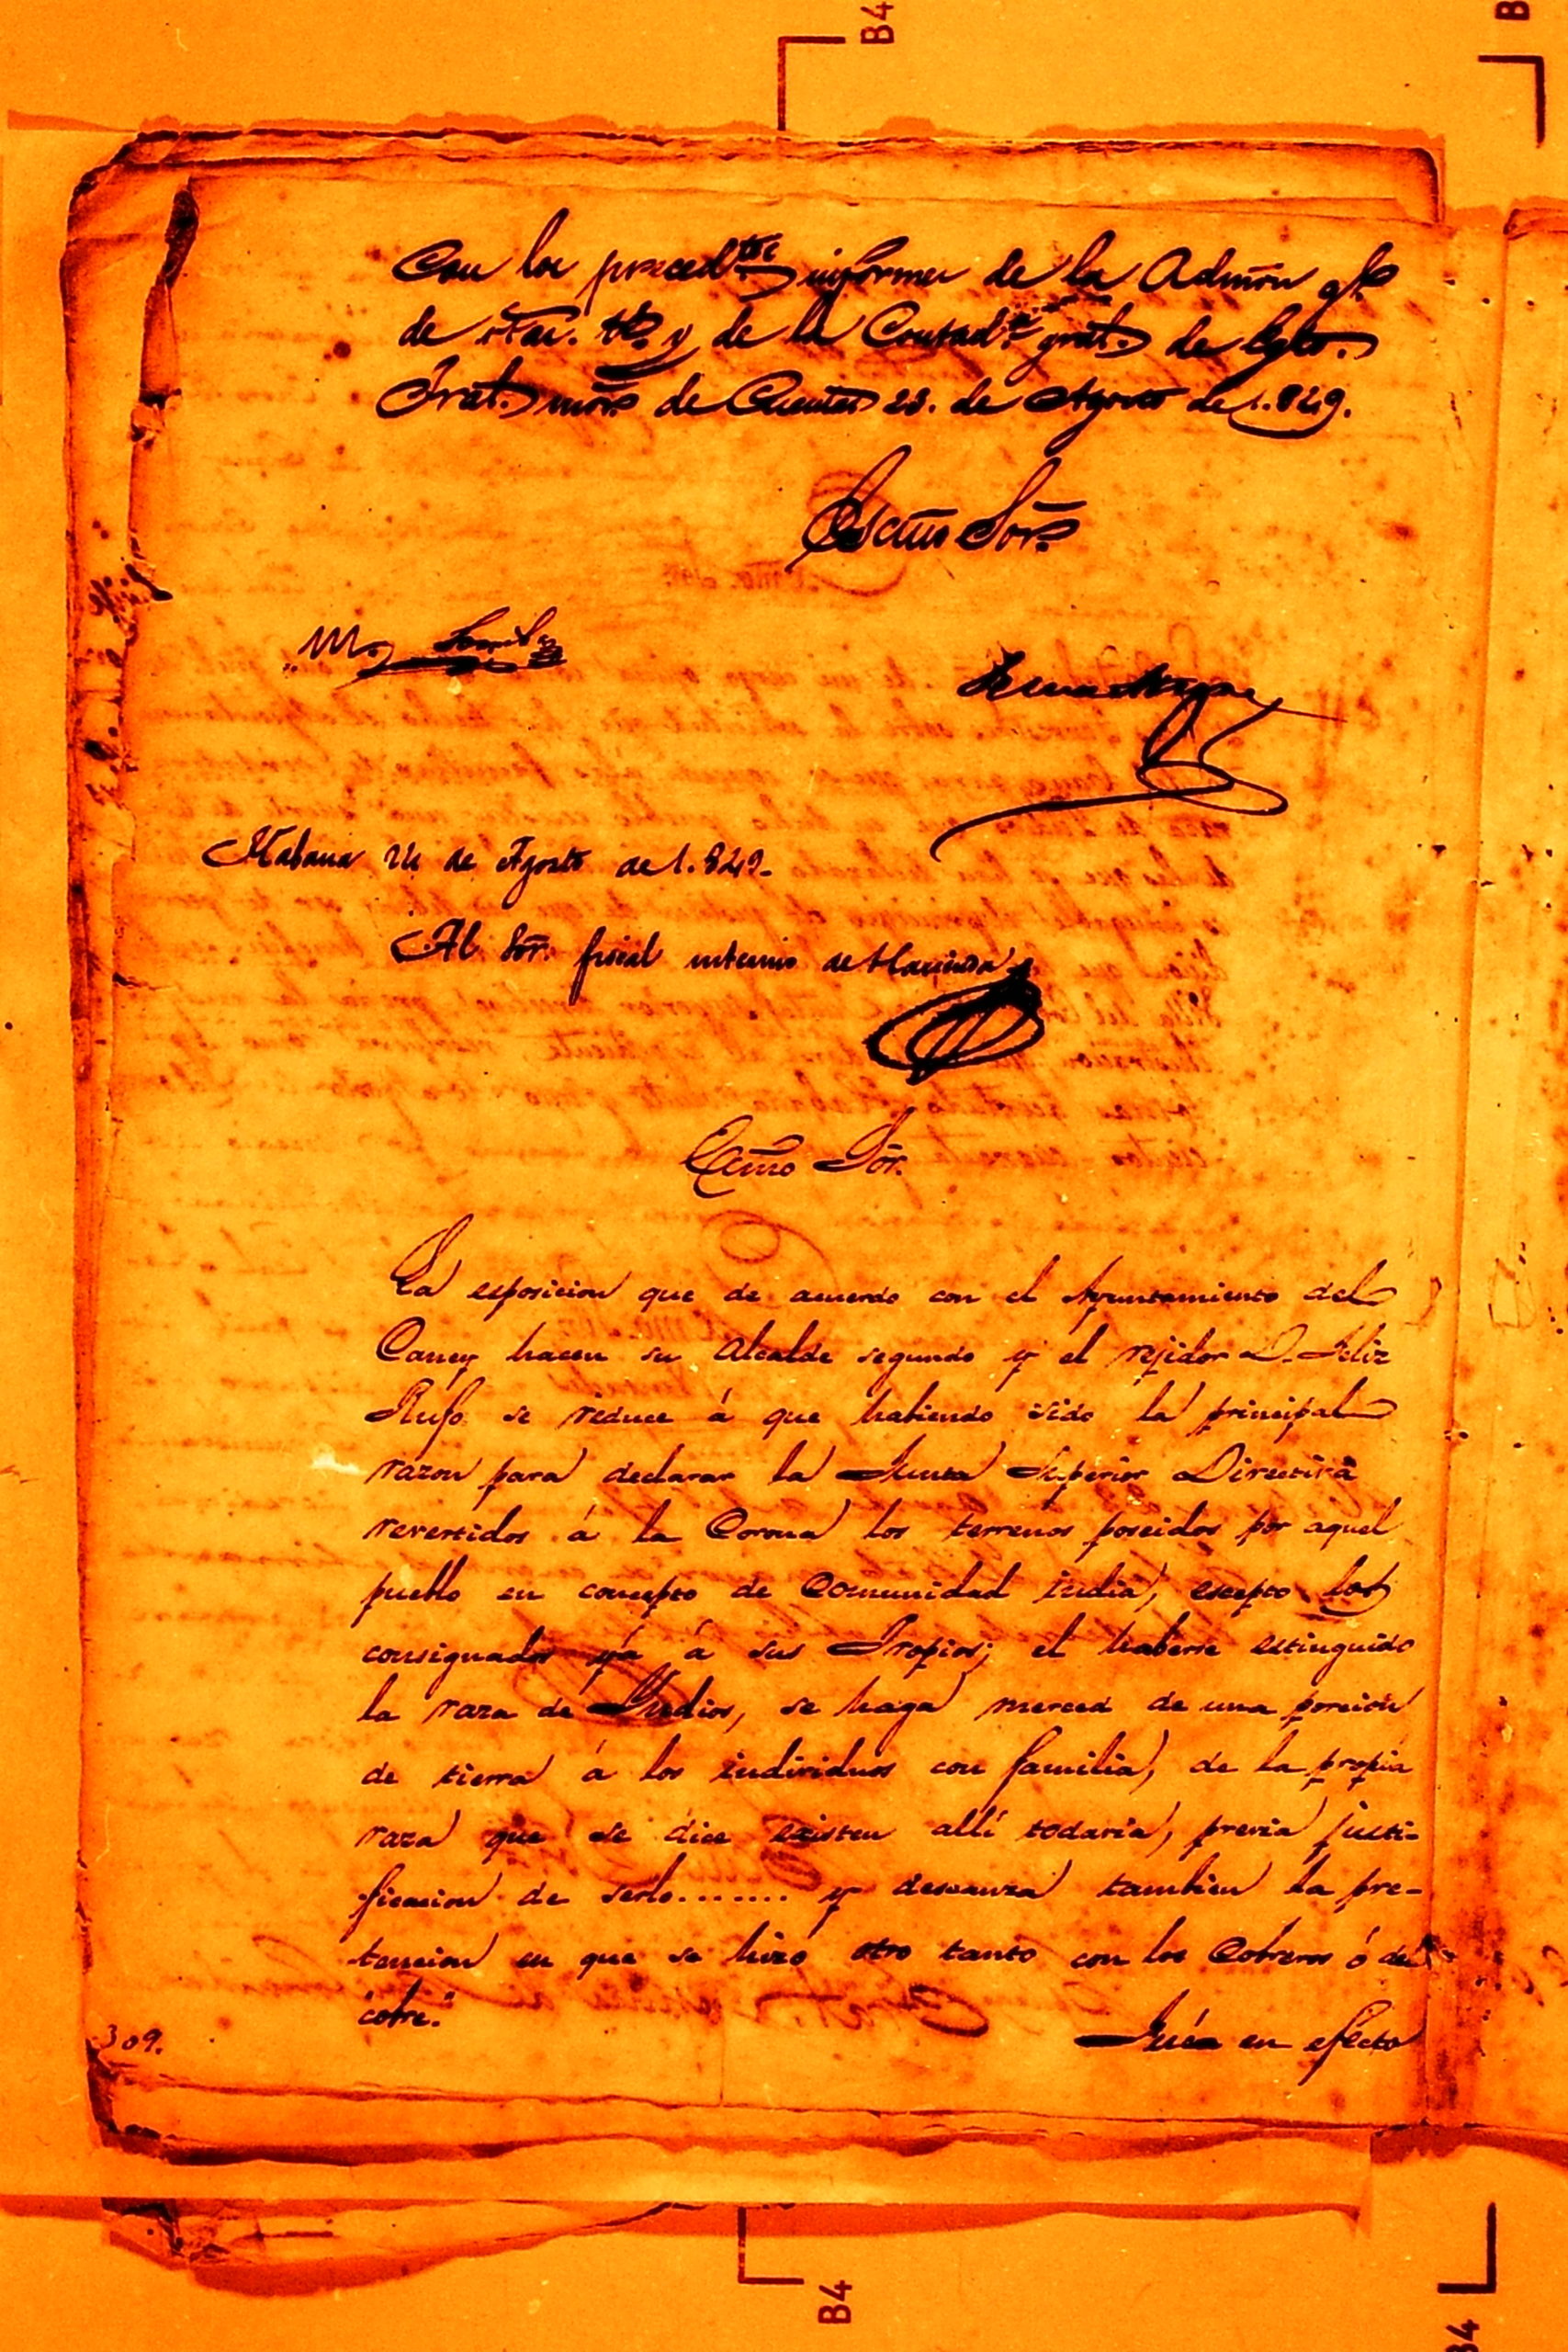 B4
B
Con los preced.tes informes de la Admon gl.
de de la Contad.a gral. de
Tral. mor. de Cuentas 23. de Agosto de 1.849.
Escmo Sor.
Habana 24 de Agosto de 1.849.
Al Sor. fiscal interino de Hacienda
Ecsmo Sor.
La esposicion que de acuerdo con el Ayuntamiento del
Caney hacen su Alcalde segundo y el rejidor D. Feliz
Rufo se reduce á que habiendo sido la principal
razon para declarar la Junta Superior Directiva
revertidos á la Corona los terrenos poseidos por aquel
pueblo en concepto de Comunidad india, escepto los
consignados yá á sus Propios; el haberse estinguido
la raza de Yndios, se haga merced de una porcion
de tierra á los individuos con familia, de la propia
raza que se dice existen allí todavia, previa justi-
ficacion de serlo....... y descansa tambien la pre-
tencion en que se hizo otro tanto con los Cobreros ó del
"cobre."
309.
en efecto
B4